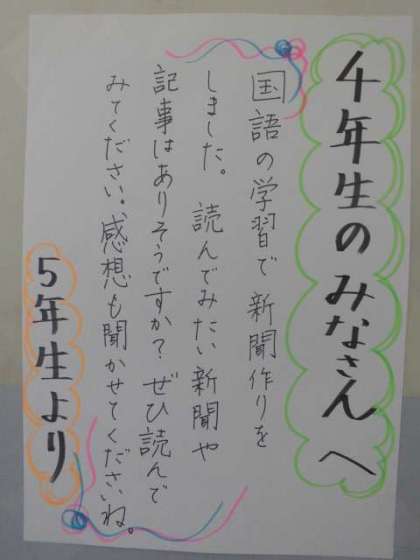 4年生のみなさんへ
国語の学習で新聞作りを
しました。読んでみたい新聞や
記事はありそうですか？ぜひ読んで
みてください。感想も聞かせてくださいね。
5年生より